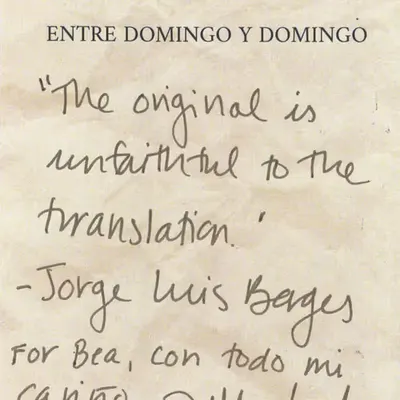 ENTRE DOMINGO Y DOMINGO
"The original is
unfaithful to the
translation."
- Jorge Luis Borges
For Bea, con todo mi
cariño,